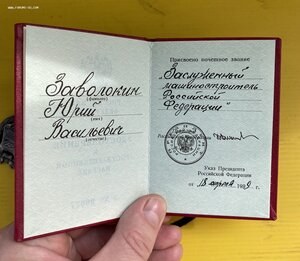 www.forums-su.com
Заволокин
(фамилия)
Юрий
(имя)
Васильевич
(отчество)
Присвоено почетное звание
„Заслуженный
машиностроитель
Российской
Федерации"
Указ Президента
Российской Федерации
от 18 апреля 199 г.